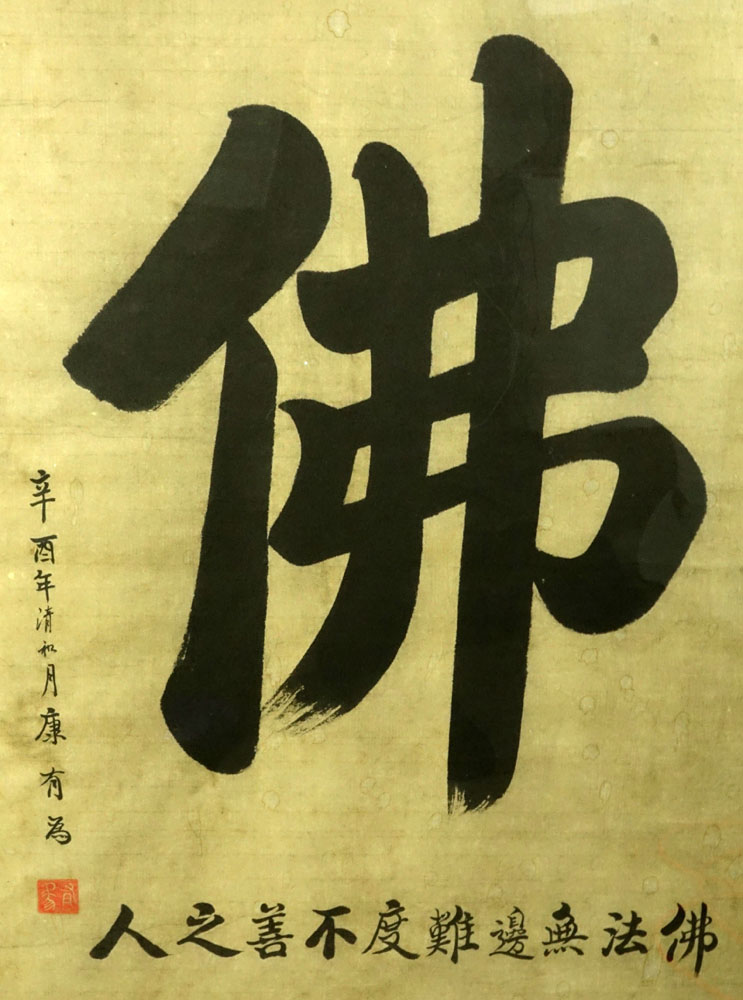 佛
佛法無邊難度不善之人
辛酉年清和月康有為